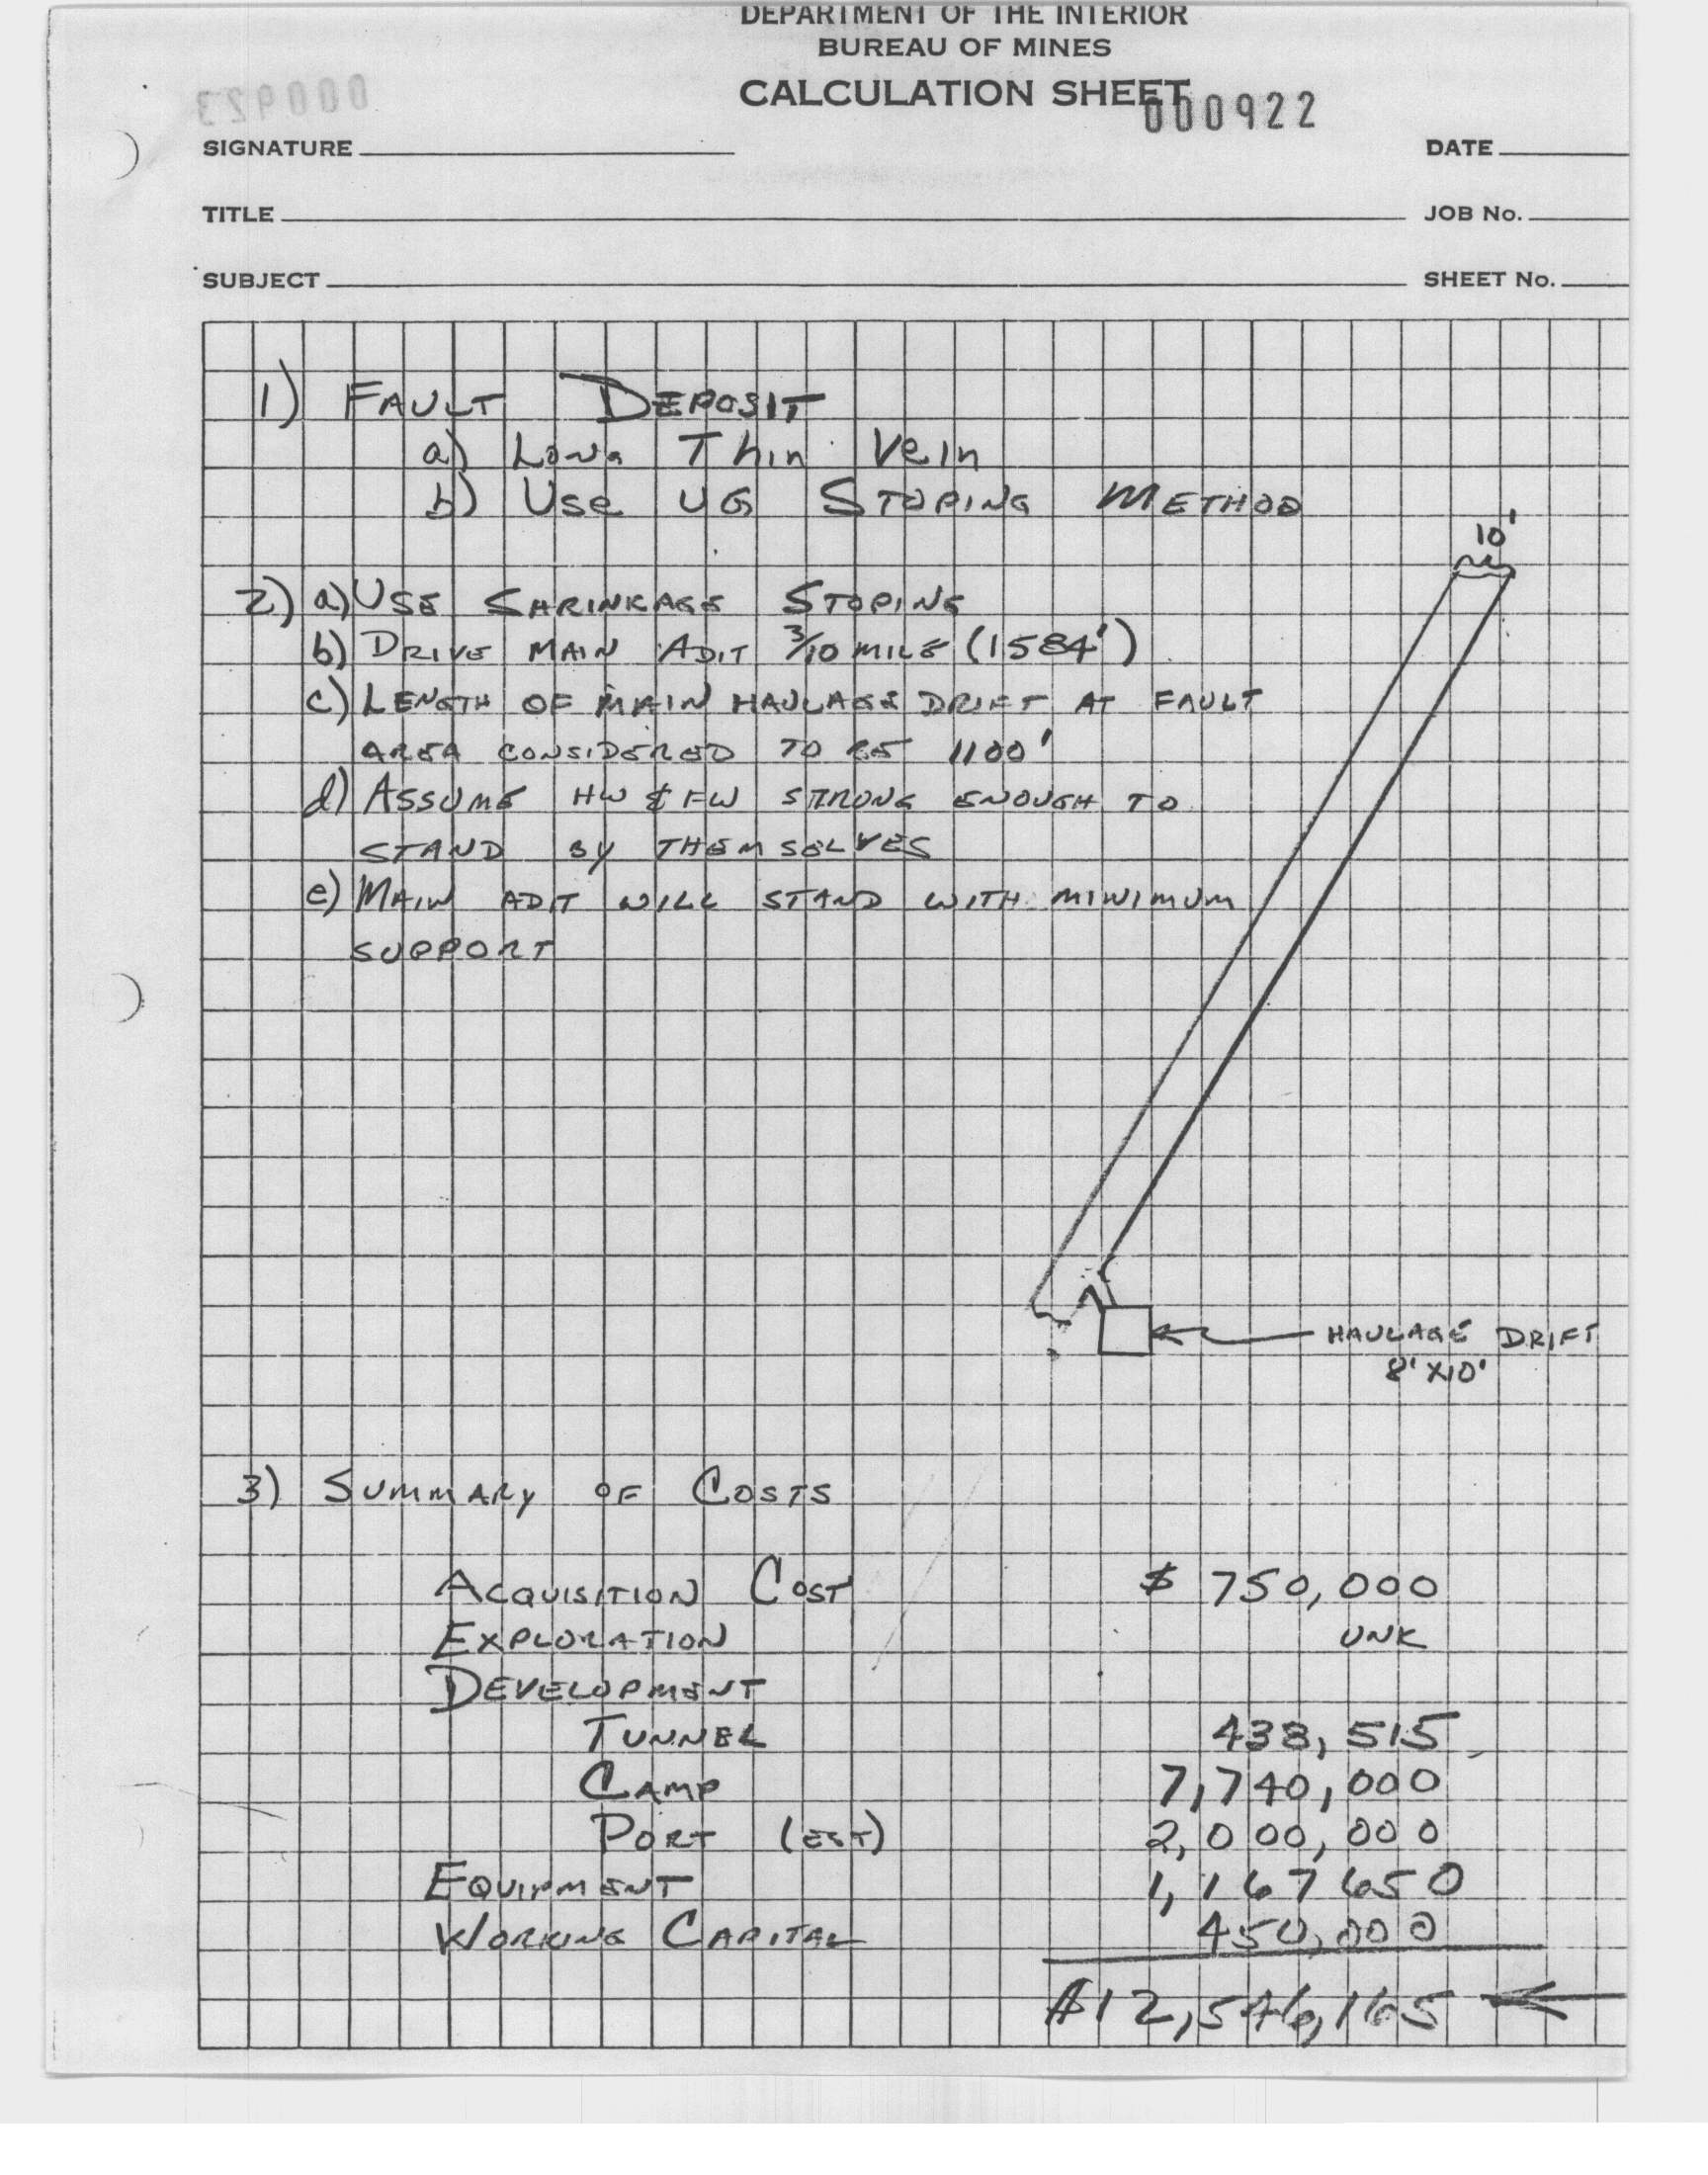 DEPARTMENT OF THE INTERIOR
BUREAU OF MINES
CALCULATION SHEET
000922
000923
SIGNATURE
DATE
TITLE
JOB No.
SUBJECT
SHEET No.
1) FAULT DEPOSIT
a) LONG Thin Vein
b) Use UG STOPING METHOD
10'
2) a) USE SHRINKAGE STOPING
b) DRIVE MAIN ADIT 3/10 MILE (1584')
c) LENGTH OF MAIN HAULAGE DRIFT AT FAULT
AREA CONSIDERED TO BE 1100'
d) ASSUME HW & FW STRONG ENOUGH TO
STAND BY THEMSELVES
e) MAIN ADIT WILL STAND WITH MINIMUM
SUPPORT
HAULAGE DRIFT
8' X 10'
3) SUMMARY OF COSTS
ACQUISITION COST $ 750,000
EXPLORATION UNK
DEVELOPMENT
TUNNEL 438,515
CAMP 7,740,000
PORT (EST) 2,000,000
EQUIPMENT 1,167,650
WORKING CAPITAL 450,000
$12,546,165